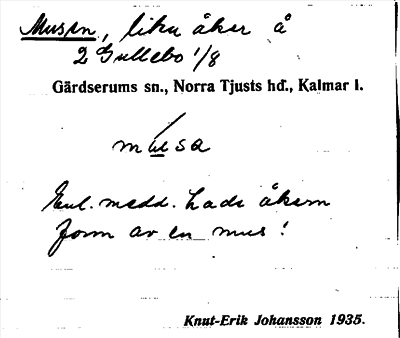 Musen, lika åker å
2 Gullebo 1/8
Gärdserums sn., Norra Tjusts hd., Kalmar l.
musa
Enl. medd. hade åkern
form av en mus!
Knut-Erik Johansson 1935.